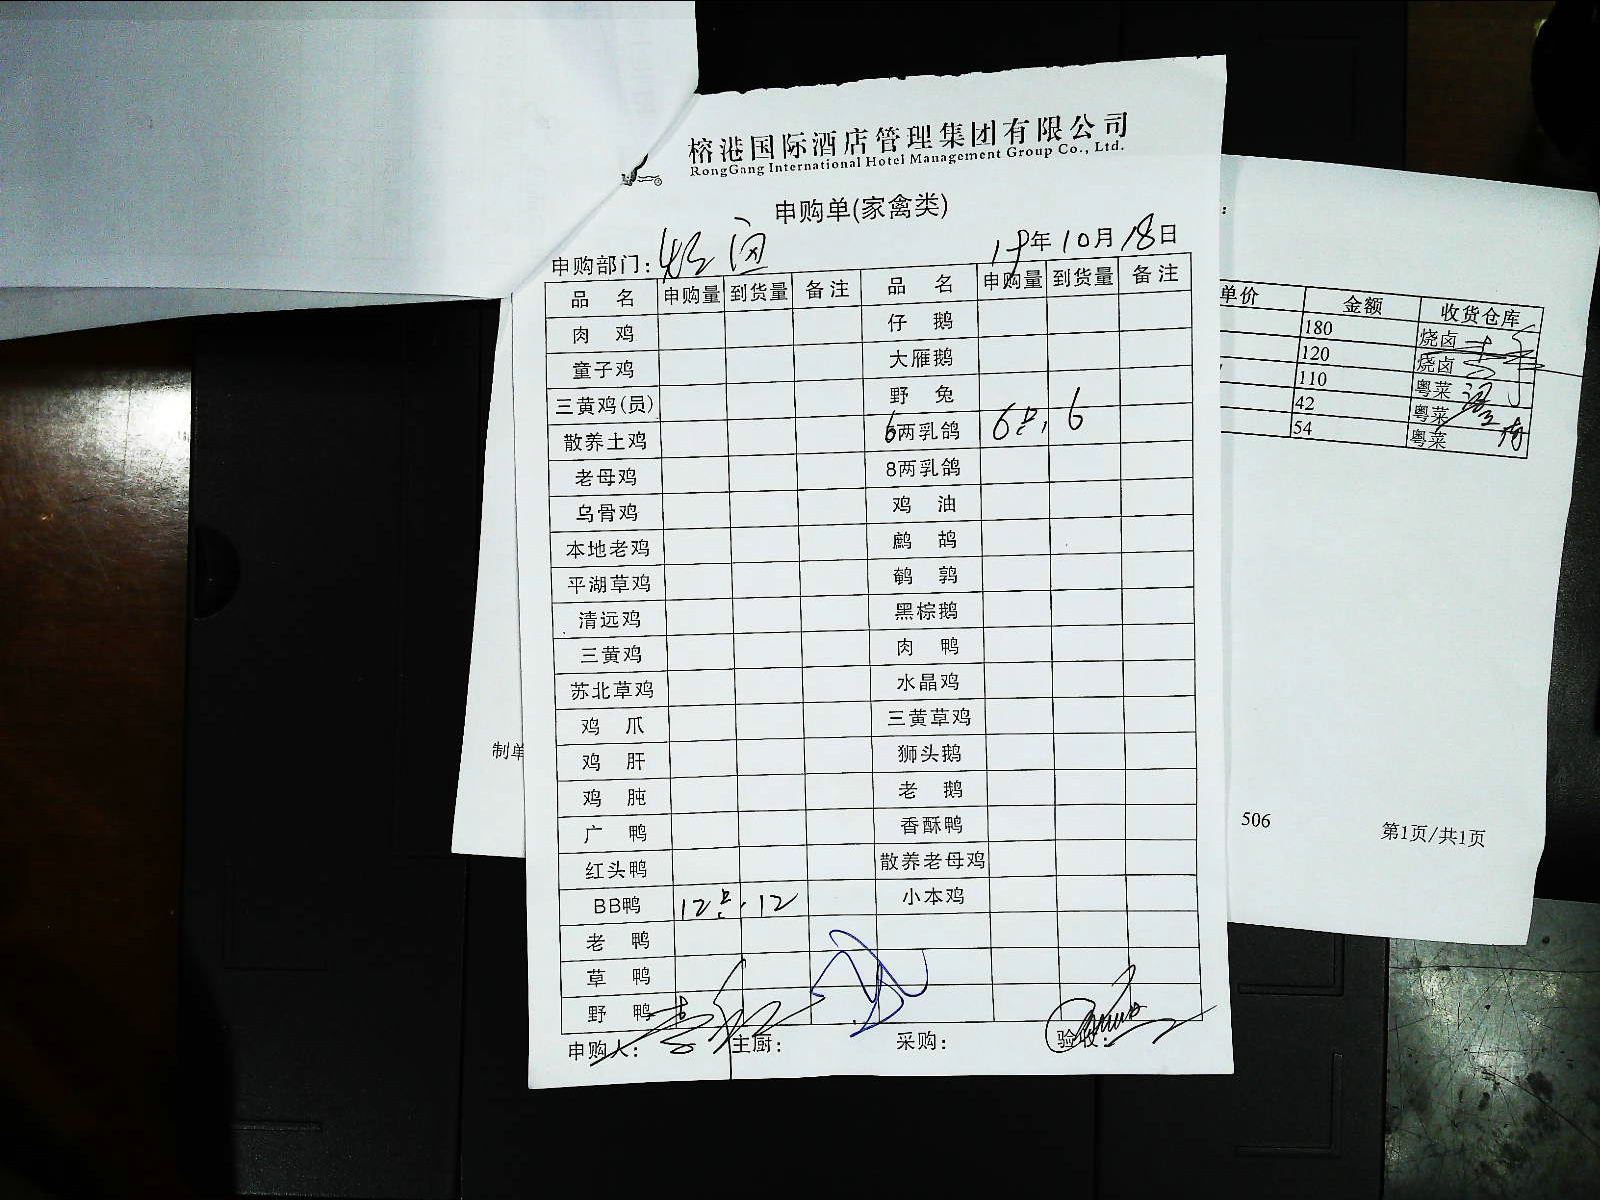 榕港国际酒店管理集团有限公司
RongGang International Hotel Management Group Co., Ltd.
申购单(家禽类)
申购部门: 烧卤 19年10月18日
品 名 申购量 到货量 备注 品 名 申购量 到货量 备注
肉 鸡 仔 鹅
童子鸡 大雁鹅
三黄鸡(员) 野 兔
散养土鸡 6两乳鸽 6只. 6
老母鸡 8两乳鸽
乌骨鸡 鸡 油
本地老鸡 鹧 鸪
平湖草鸡 鹌 鹑
清远鸡 黑棕鹅
三黄鸡 肉 鸭
苏北草鸡 水晶鸡
鸡 爪 三黄草鸡
鸡 肝 狮头鹅
鸡 肫 老 鹅
广 鸭 香酥鸭
红头鸭 散养老母鸡
BB鸭 12只. 12 小本鸡
老 鸭
草 鸭
野 鸭
申购人: 主厨: 采购: 验收:
单价 金额 收货仓库
180 烧卤
120 烧卤
110 粤菜
42 粤菜
54 粤菜
制单
506 第1页/共1页